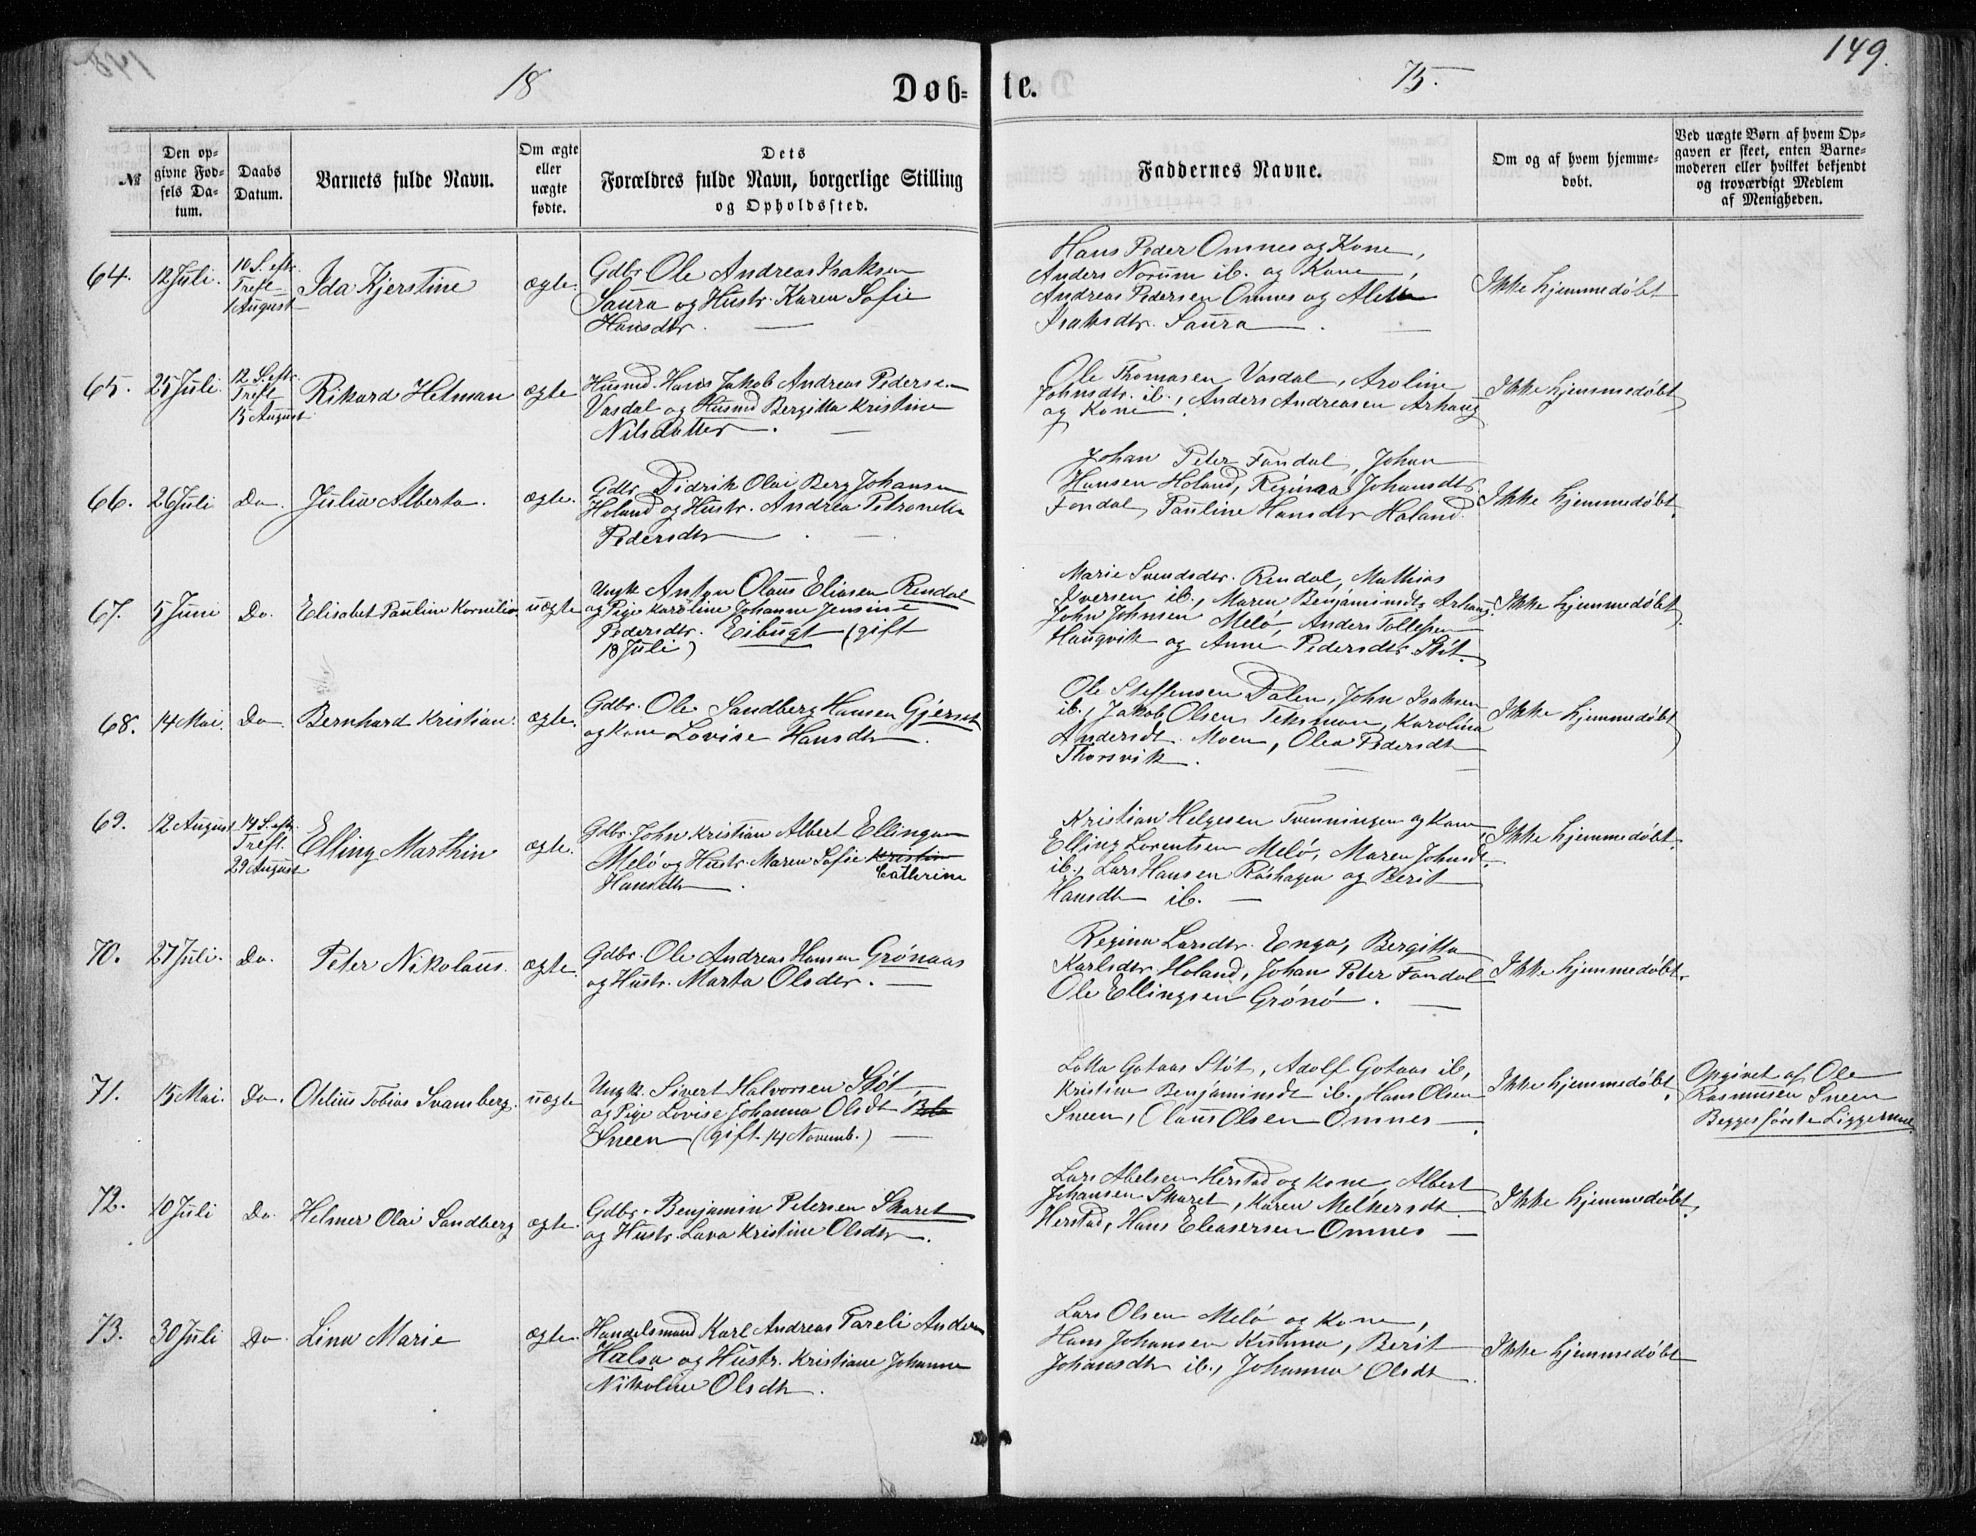 149.
18
Døb-
te.
75.
№
Den op-
givne Fød-
sels Da-
tum.
Daabs
Datum.
Barnets fulde Navn.
Om ægte
eller
uægte
fødte.
Dets
Forældres fulde Navn, borgerlige Stilling
og Opholdssted.
Faddernes Navne.
Om og af hvem hjemme-
døbt.
Ved uægte Børn af hvem Op-
gaven er skeet, enten Barne-
moderen eller hvilket bekjendt
og troværdigt Medlem
af Menigheden.
64.
12 Juli.
10 S. eftr.
Tref.
1 August
Ida Kjerstine
ægte.
Gdbr. Ole Andreas Isaksen
Saura og Hustr. Karen Sofie
Hansdtr.
Hans Peder Omnes og Kone,
Anders Norum ib. og Kone,
Andreas Pedersen Omnes og
Isaksdtr. Saura
Ikke hjemmedøbt
65.
25 Juli.
12 S. eftr.
Tref.
15 August
Rikard Helman
ægte
Husmd. Hans Jakob Andreas Pedersen
Vasdal og Husmd Bergitta Kristine
Nilsdatter.
Ole Thomasen Vasdal, Aroline
Johnsdtr. ib., Anders Andreasen Arhaug
og Kone.
Ikke hjemmedøbt
66.
26 Juli
Do.
Julia Alberta.
ægte.
Gdbr. Didrik Olai Berg Johansen
Holand og Hustr. Andrea Petronella
Pedersdtr
Johan Peter Fondal, Johan
Hansen Holand, Regina Johansdtr
Fondal, Pauline Hansdtr Holand.
Ikke hjemmedøbt.
67.
5 Juni
Do.
Elisabet Pauline Kornelia
uægte
Ungk. Anton Olaus Eliasen Rendal
og Pige Karoline Johanne Jensine
Pedersdtr. Eibugt (gift
18 Juli)
Marie Svendsdtr. Rendal, Mathias
Iversen ib., Maren Benjaminsdtr Arhaug,
John Johnsen Melø, Anders Tollefsen
Haugvik og Anne Pedersdtr. Støt.
Ikke hjemmedøbt.
68.
14 Mai.
Do.
Bernhard Kristian.
ægte.
Gdbr. Ole Sandberg Hansen Gjerset
og Kone Lovise Hansdtr.
Ole Steffensen Dalen, John Isaksen
ib., Jakob Olsen Teksmon, Karolina
Andersdt. Moen, Olea Pedersdt
Thorsvik.
Ikke hjemmedøbt
69.
12 August
14 S. eftr.
Tref.
29 August
Elling Marthin
ægte.
Gdbr. John Kristian Albert Ellingsen
Melø og Hustr. Maren Sofie Kristin
Cathrine
Hansdtr.
Kristian Helgesen Svenningen og Kone
Elling Lorentsen Melø, Maren Johnsdt.
ib., Lars Hansen Røshagen og Berit
Hansdt ib.
Ikke hjemmedøbt.
70.
27 Juli.
Do.
Peter Nikolaus.
ægte.
Gdbr. Ole Andreas Hansen Grønaas
og Hustr. Marta Olsdtr.
Regina Larsdtr. Enga, Bergitta
Karlsdtr. Holand, Johan Peter Fondal
Ole Ellingsen Grønø.
Ikke hjemmedøbt.
71.
15 Mai.
Do.
Otelius Tobias Svansberg.
uægte
Ungk. Sivert Halvorsen Støt,
og Pige Lovise Johanna Olsdt
Sneen (gift 14 Novemb.)
Lotta Gotaas Støt, Adolf Gotaas ib,
Kristine Benjaminsdt ib., Hans Olsen
Sneen, Olaus Olsen Omnes.
Ikke hjemmedøbt.
Opgivet af Ole
Rasmussen Sneen
Begges første Liggermal.
72.
10 Juli
Do.
Helmer Olai Sandberg
ægte.
Gdbr. Benjamin Petersen Skaret
og Hustr. Lava Kristine Olsdtr.
Lars Abelsen Herstad og Kone, Albert
Johansen Skaret, Karen Melkersdt.
Herstad, Hans Eleasersen Omnes
Ikke hjemmedøbt.
73.
30 Juli
Do.
Lina Marie
ægte.
Handelsmand Karl Andreas Pareli Andersen
Halsa og Hustr. Kristiane Johanna
Nikoline Olsdtr.
Lars Olsen Melø og Kone,
Hans Johansen Kistrna, Berit
Johansdtr ib., Johanna Olsdt
Ikke hjemmedøbt